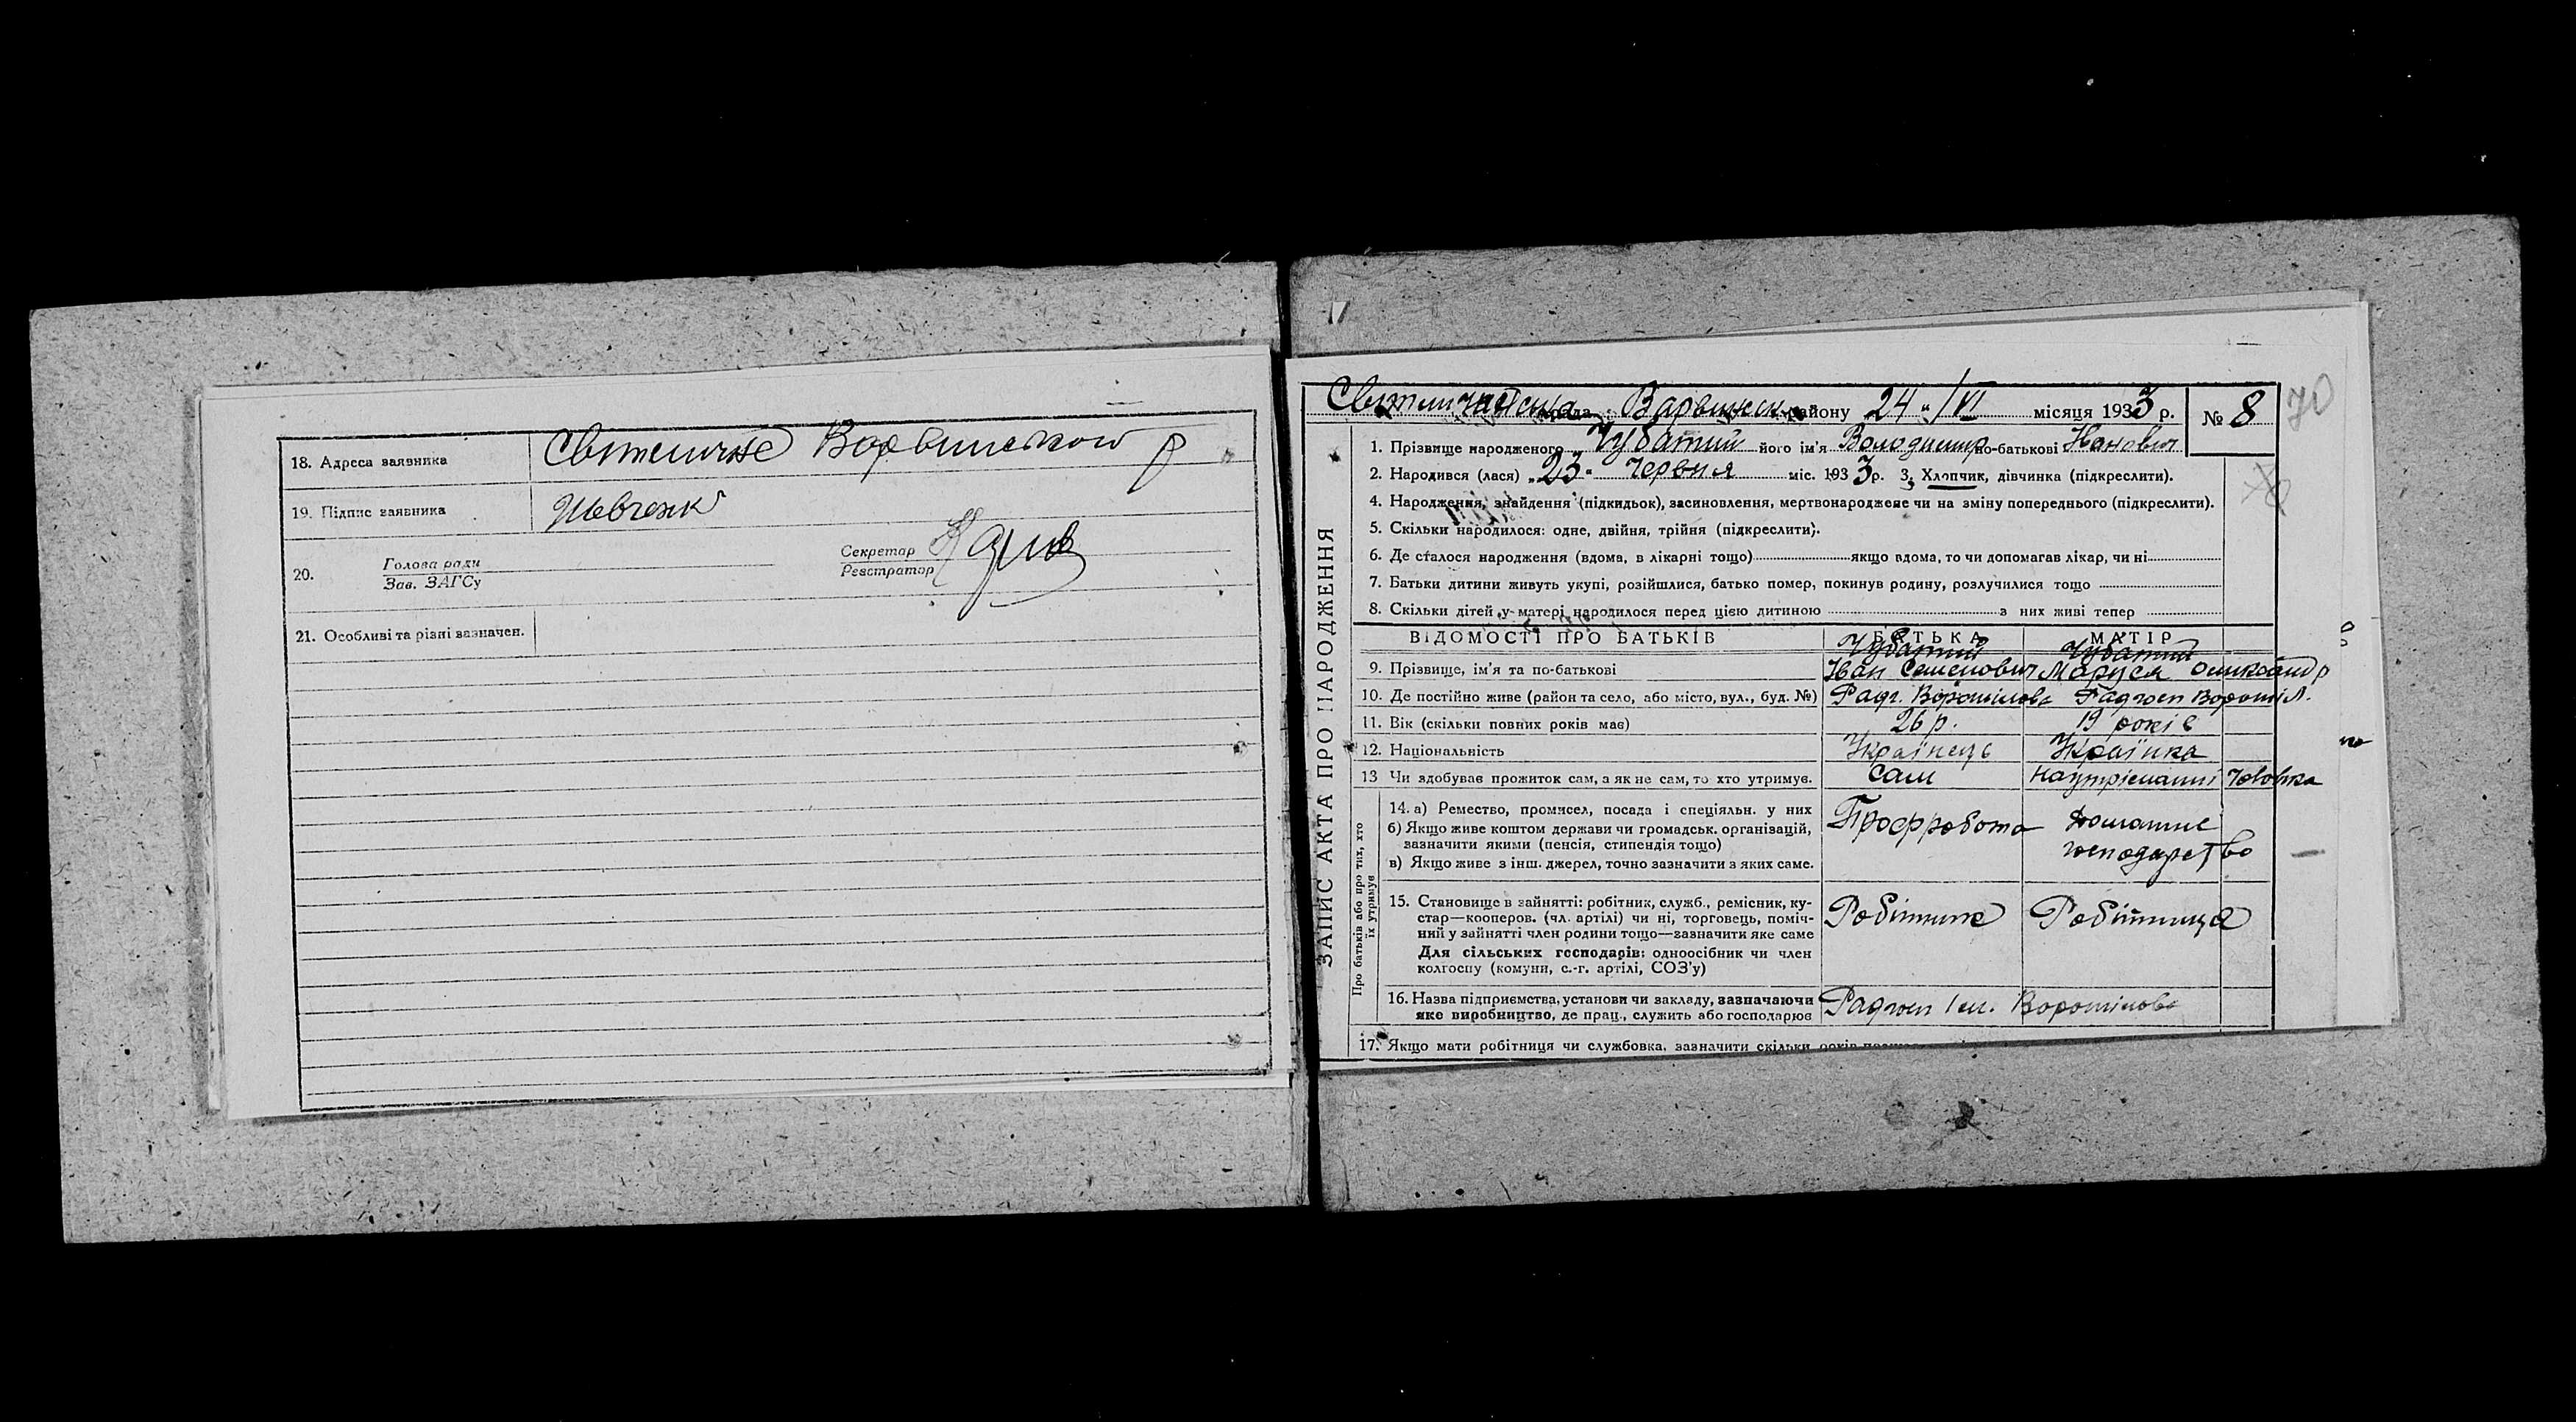 18. Адреса заявника Світличне Варвинського р
19. Підпис заявника Шевченко
20. Голова ради
Зав. ЗАГСу
Секретар
Реєстратор
21. Особливі та різні зазначен.
рада Варвинськ району 24 " /VI місяця 1933 р. № 8
70
ЗАПИС АКТА ПРО НАРОДЖЕННЯ
1. Прізвище народженого Чубатий його ім'я Володимир по-батькові Іванович
2. Народився (лася) „23" червня міс. 1933 р. 3. Хлопчик, дівчинка (підкреслити).
4. Народження, знайдення (підкидьок), засиновлення, мертвонароджене чи на зміну попереднього (підкреслити).
5. Скільки народилося: одне, двійня, трійня (підкреслити).
6. Де сталося народження (вдома, в лікарні тощо) якщо вдома, то чи допомагав лікар, чи ні
7. Батьки дитини живуть укупі, розійшлися, батько помер, покинув родину, розлучилися тощо
8. Скільки дітей у матері народилося перед цією дитиною з них живі тепер
ВІДОМОСТІ ПРО БАТЬКІВ БАТЬКА МАТІР
Чубатий Чубатий
9. Прізвище, ім'я та по-батькові Іван Семенович Маруся Олександр
10. Де постійно живе (район та село, або місто, вул., буд. №) Радг. Ворошилова Радгосп Ворошил.
11. Вік (скільки повних років має) 26 р. 19 років
12. Національність Українець Українка
13 Чи здобуває прожиток сам, а як не сам, то хто утримує. Сам На утріманні чоловіка
Про батьків або про тих, хто
їх утримує
14. а) Ремество, промисел, посада і спеціяльн. у них
б) Якщо живе коштом держави чи громадськ. організацій,
зазначити якими (пенсія, стипендія тощо)
в) Якщо живе з інш. джерел, точно зазначити з яких саме.
Профробота Домашнє
господарство
15. Становище в зайнятті: робітник, служб., ремісник, ку-
стар—кооперов. (чл. артілі) чи ні, торговець, поміч-
ний у зайнятті член родини тощо—зазначити яке саме
Для сільських господарів: одноосібник чи член
колгоспу (комуни, с.-г. артілі, СОЗ'у)
Робітник Робітниця
16. Назва підприємства, установи чи закладу, зазначаючи
яке виробництво, де прац., служить або господарює
Радгосп Ім. Ворошилова
17. Якщо мати робітниця чи службовка, зазначити скільки років